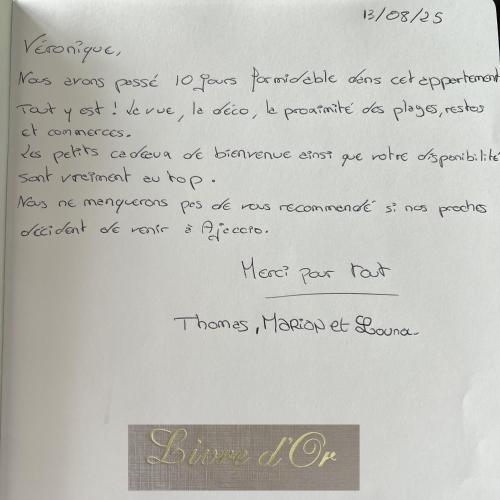 13/08/25
Véronique,
Nous avons passé 10 jours formidable dans cet appartement
Tout y est ! La vue, la déco, la proximité des plages, restos
et commerces.
Les petits cadeua de bienvenue ainsi que votre disponibilité
sont vraiment au top.
Nous ne manquerons pas de vous recommandé si nos proches
décident de venir à Ajaccio.
Merci pour tout
Thomas, MARION et Louna.
Livre d'Or